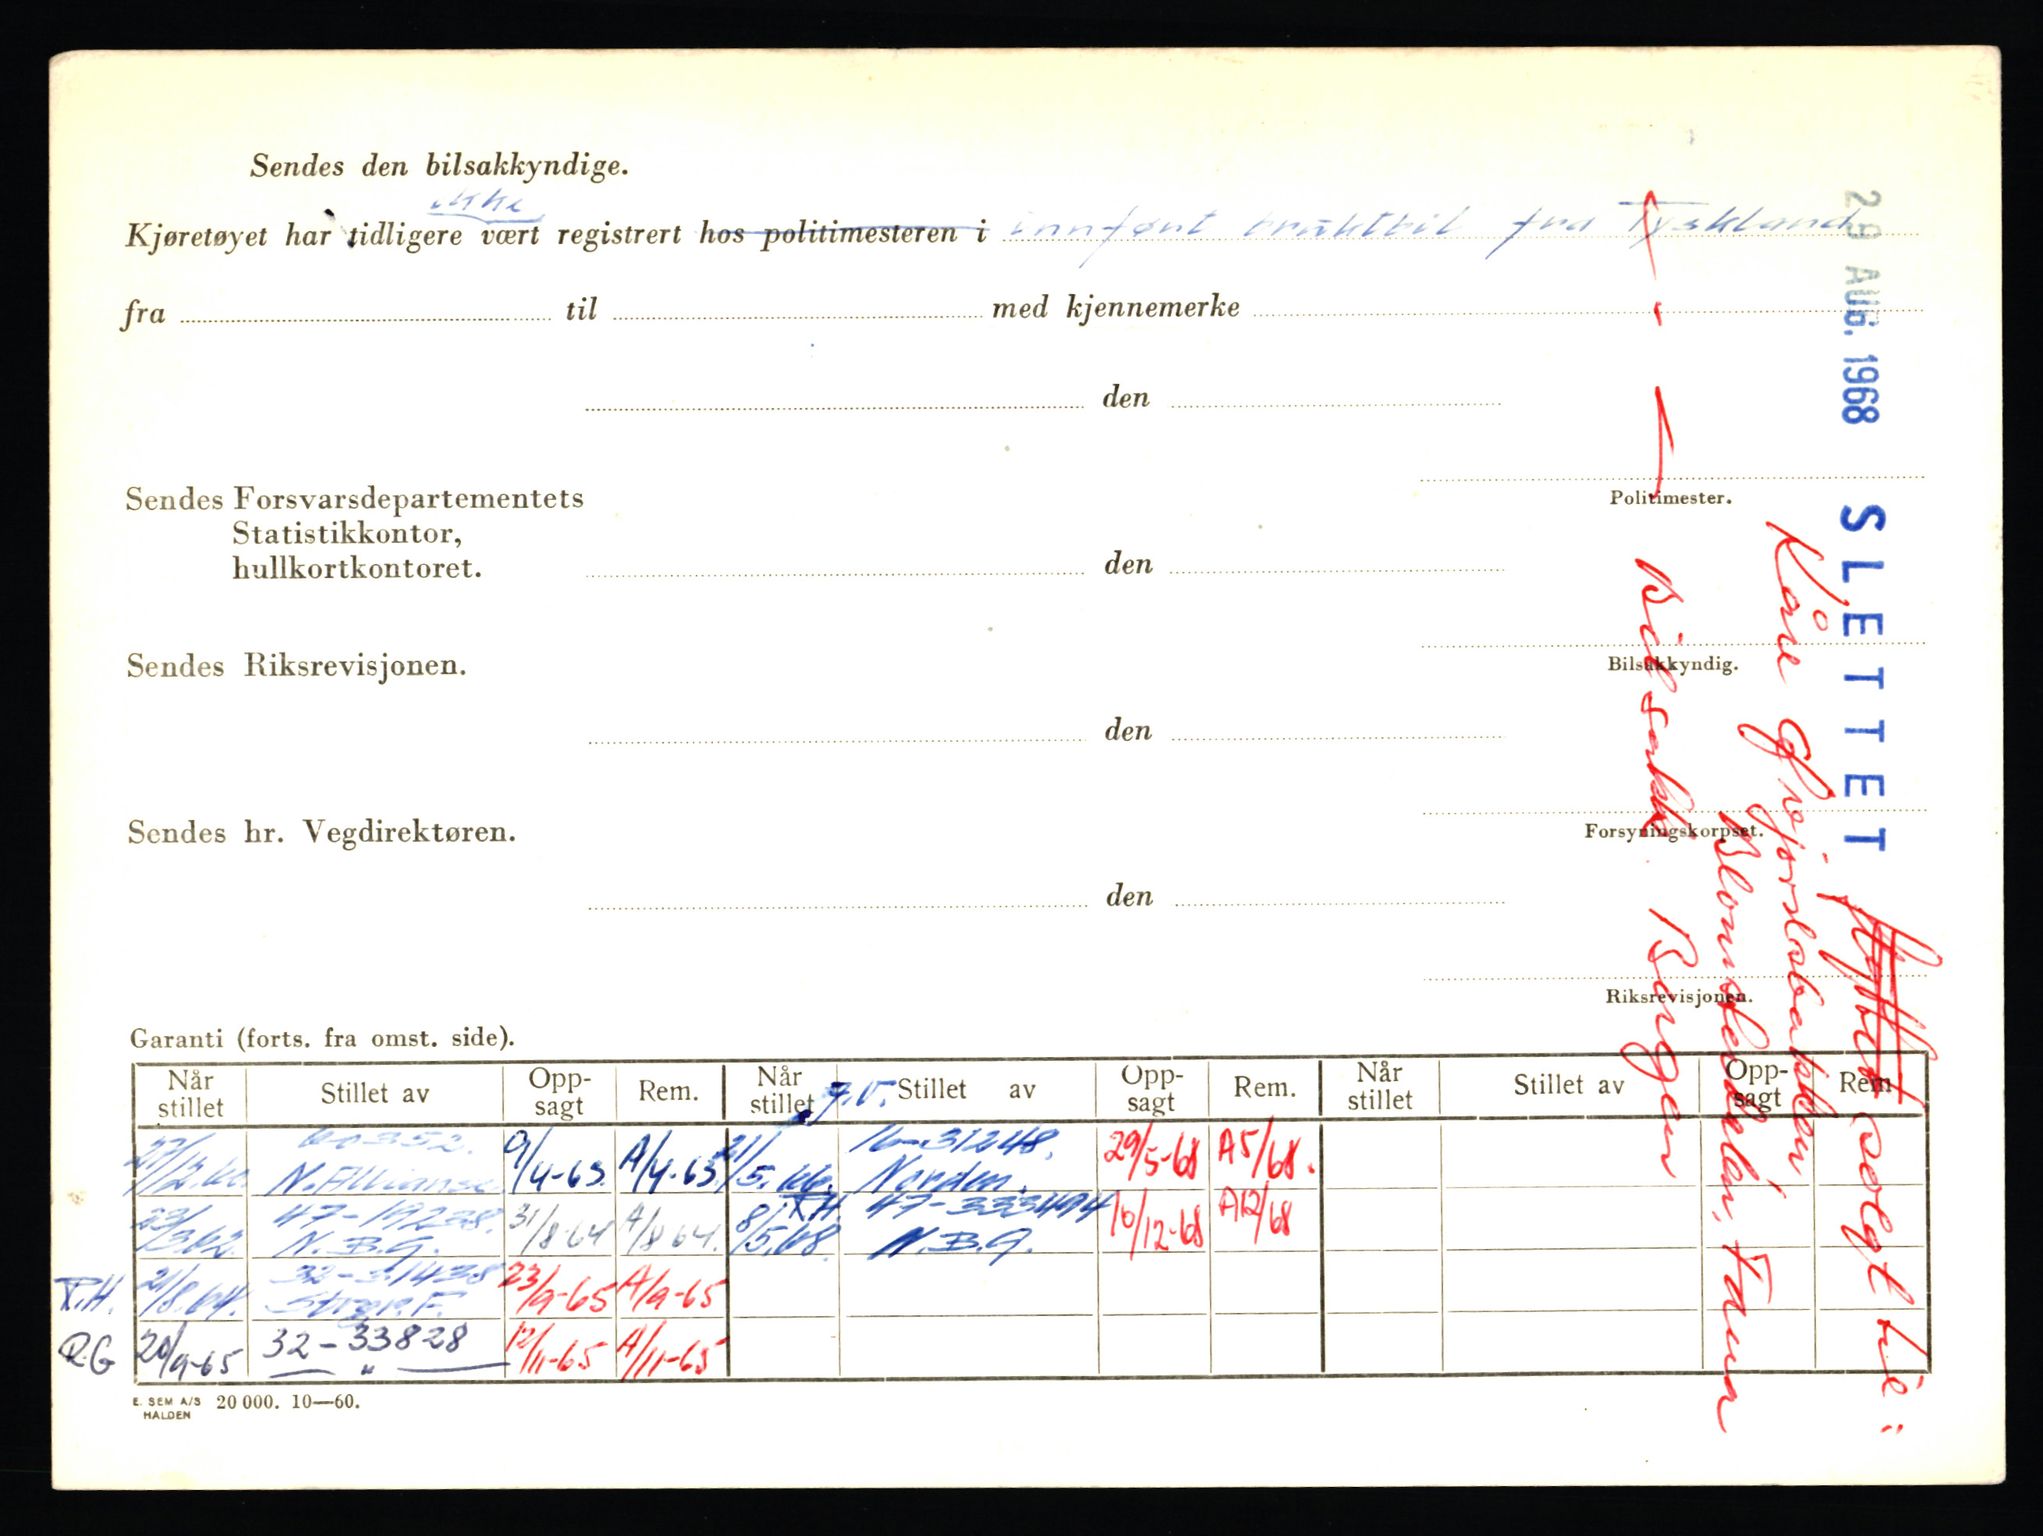 Sendes den bilsakkyndige.
ikke
Kjøretøyet har tidligere vært registrert hos politimesteren i innført bruktbil fra Tyskland
fra til med kjennemerke
den
Politimester.
Sendes Forsvarsdepartementets
Statistikkontor,
hullkortkontoret.
den
Bilsakkyndig.
Sendes Riksrevisjonen.
den
Forsyningskorpset.
Sendes hr. Vegdirektøren.
den
Riksrevisjonen.
29 AUG. 1968 SLETTET
solgt til:
Kåre
Blomsterdalen, Fana
Bilsakk. Bergen
Garanti (forts. fra omst. side).
Når stillet Stillet av Opp-sagt Rem. Når stillet Stillet av Opp-sagt Rem. Når stillet Stillet av Opp-sagt Rem
9/4-63. A/4-63. 21/5.66. 16-31248. Norden. 29/5-68 A5/68.
23/3.62. 47-19238. N.B.G. 31/8-64 A/8 64. R.H. 8/5.68 47-333494 N.B.G. 10/12-68 A12/68
R.H. 21/8.64. 32-31438 Storgr.F. 23/9-65 A/9-65
R.G 20/9-65 32-33828 — " — 12/11-65 A/11-65
E. SEM A/S HALDEN 20 000. 10—60.